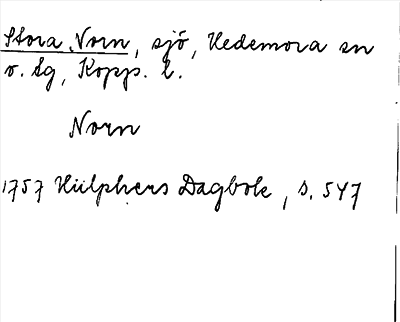 Stora Norn, sjö, Hedemora sn
o. sg, Kopp. l.
Norn
1757 Hülphers Dagbok, s. 547